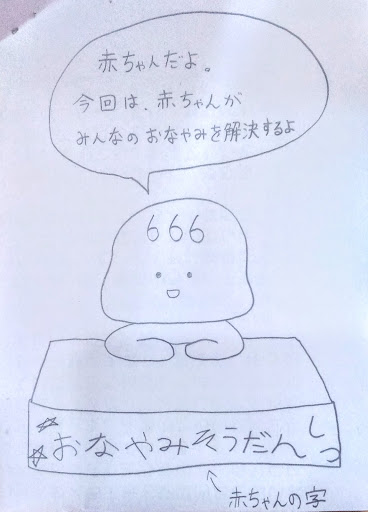 赤ちゃんだよ。
今回は、赤ちゃんが
みんなのおなやみを解決するよ
666
☆☆おなやみそうだんしつ
赤ちゃんの字